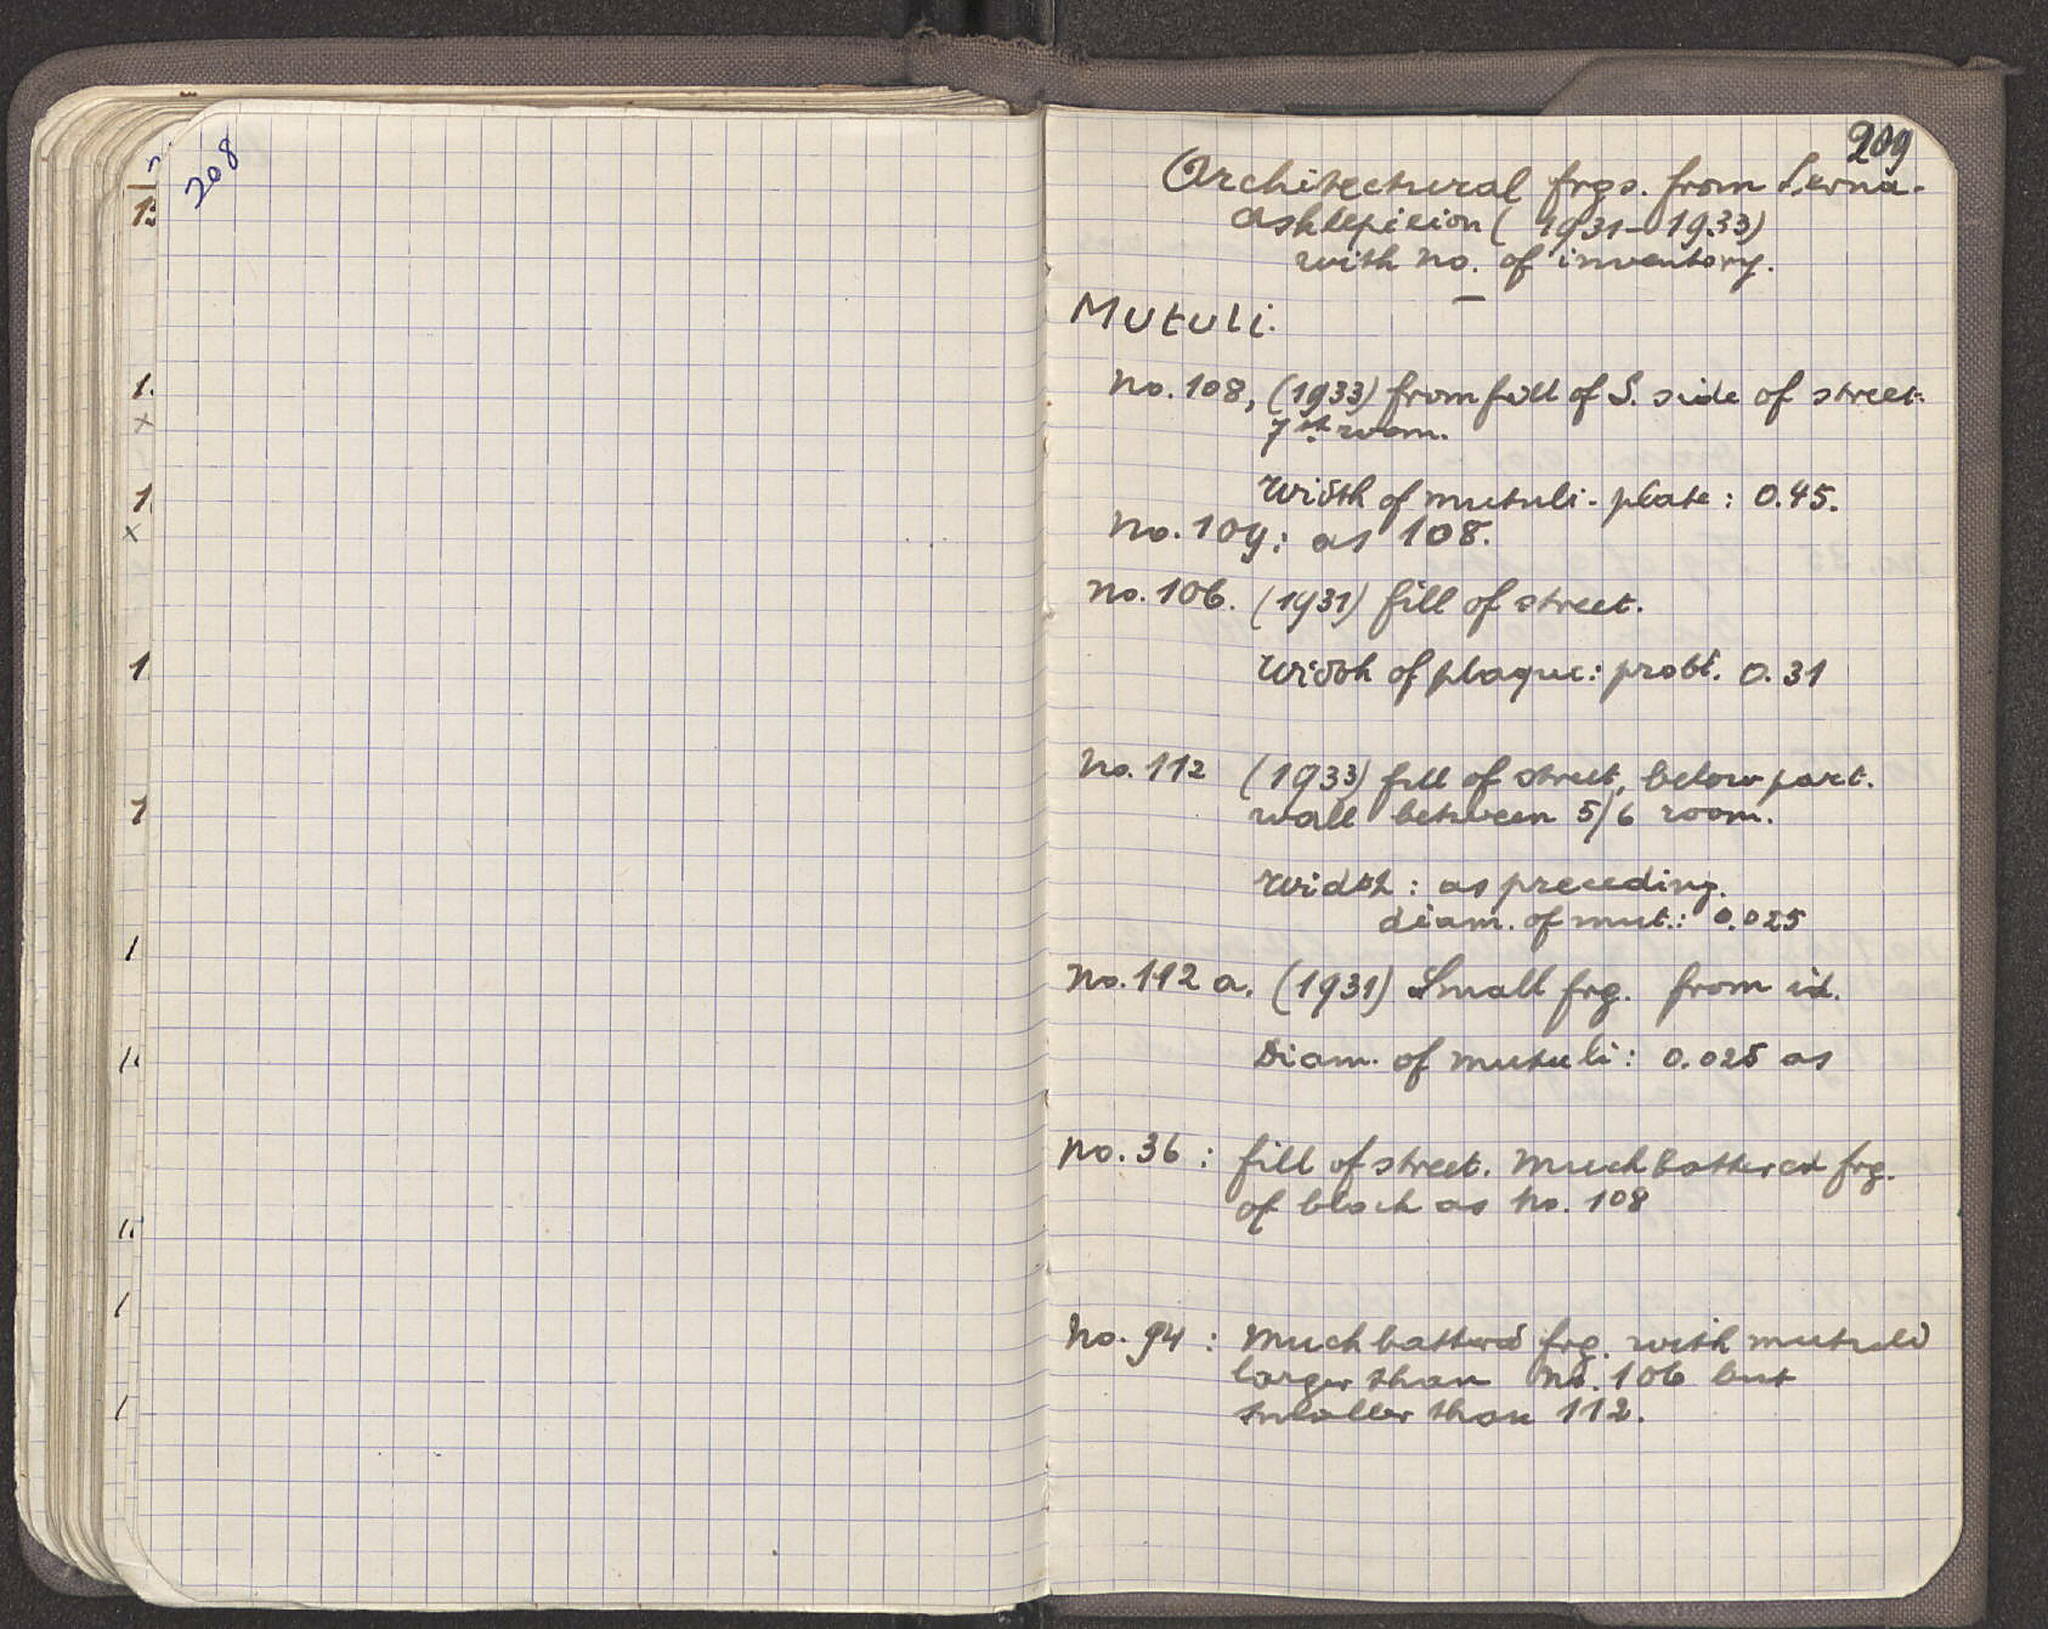 208
209
Architectural frgs. from Lerna-
Asklepieion (1931-1933)
with no. of inventory.
Mutuli.
No. 108, (1933) from fill of S. side of street.
7th room.
Width of mutuli-plate: 0.45.
No. 109: as 108.
No. 106. (1931) fill of street.
Width of plaque: probl. 0.31
No. 112 (1933) fill of street, below part.
wall between 5/6 room.
Width: as preceding.
diam. of mut.: 0.025
No. 112 a. (1931) Small frg. from id.
Diam. of mutuli: 0.025 as
No. 36: fill of street. Much battered frg.
of block as No. 108
No. 94: Much battered frg. with mutuli
larger than No. 106 but
smaller than 112.